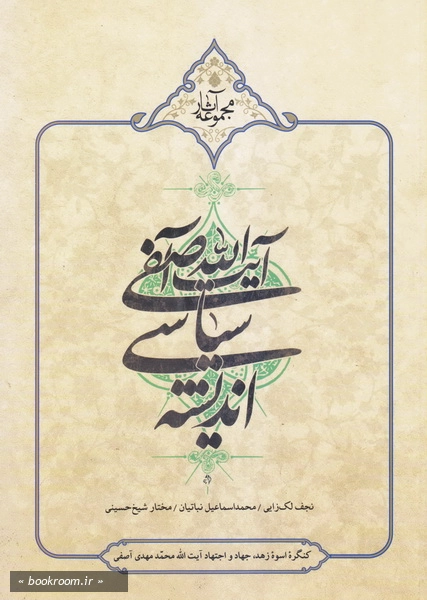 مجموعه آثار
اندیشه
سیاسی
آیت الله آصفی
نجف لک‌زایی / محمداسماعیل نباتیان / مختار شیخ‌حسینی
کنگرهٔ اسوهٔ زهد، جهاد و اجتهاد آیت الله محمّد مهدی آصفی
« bookroom.ir »